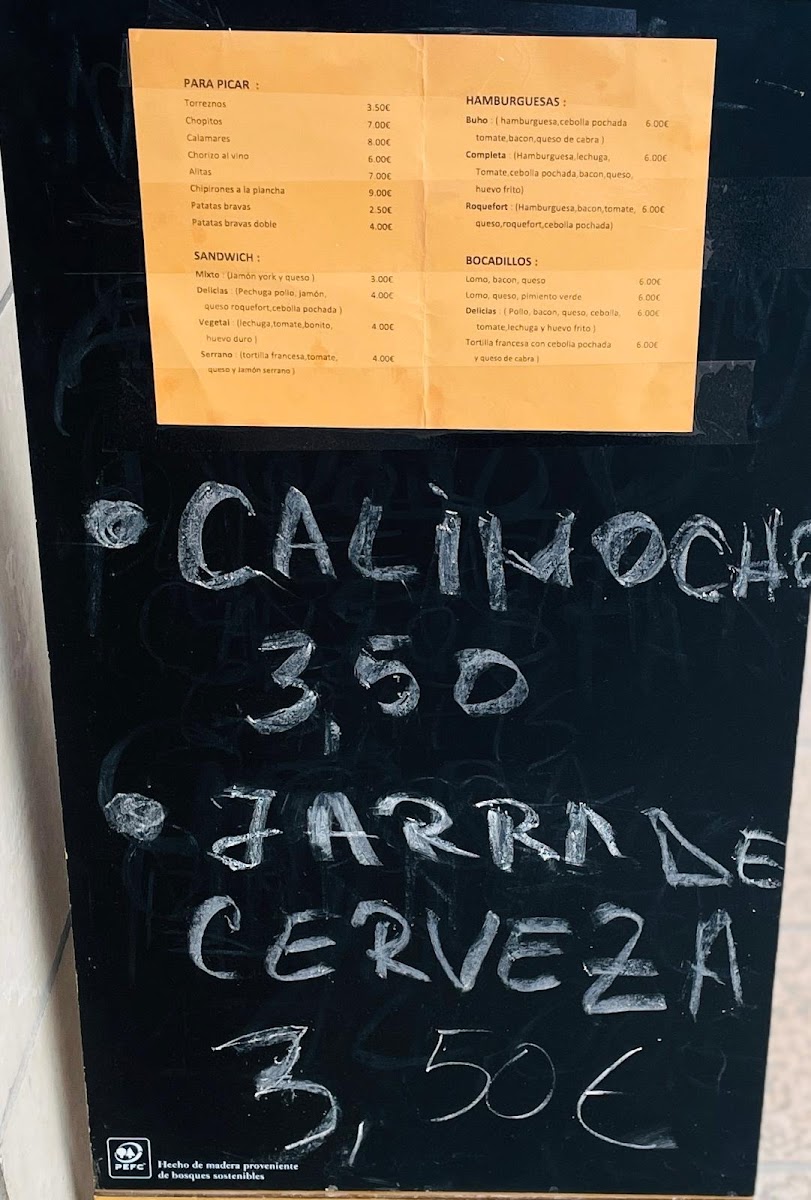 PARA PICAR :
Torreznos 3.50€
Chopitos 7.00€
Calamares 8.00€
Chorizo al vino 6.00€
Alitas 7.00€
Chipirones a la plancha 9.00€
Patatas bravas 2.50€
Patatas bravas doble 4.00€
SANDWICH :
Mixto : (Jamón york y queso ) 3.00€
Delicias : (Pechuga pollo, jamón, 4.00€
queso roquefort,cebolla pochada )
Vegetal : (lechuga,tomate,bonito, 4.00€
huevo duro )
Serrano : (tortilla francesa,tomate, 4.00€
queso y Jamón serrano )
HAMBURGUESAS :
Buho : ( hamburguesa,cebolla pochada 6.00€
tomate,bacon,queso de cabra )
Completa : (Hamburguesa,lechuga, 6.00€
Tomate,cebolla pochada,bacon,queso,
huevo frito)
Roquefort : (Hamburguesa,bacon,tomate, 6.00€
queso,roquefort,cebolla pochada)
BOCADILLOS :
Lomo, bacon, queso 6.00€
Lomo, queso, pimiento verde 6.00€
Delicias : ( Pollo, bacon, queso, cebolla, 6.00€
tomate,lechuga y huevo frito )
Tortilla francesa con cebolla pochada 6.00€
y queso de cabra )
CALIMOCHO
3,50
JARRA DE
CERVEZA
3,50€
PEFC
Hecho de madera proveniente
de bosques sostenibles